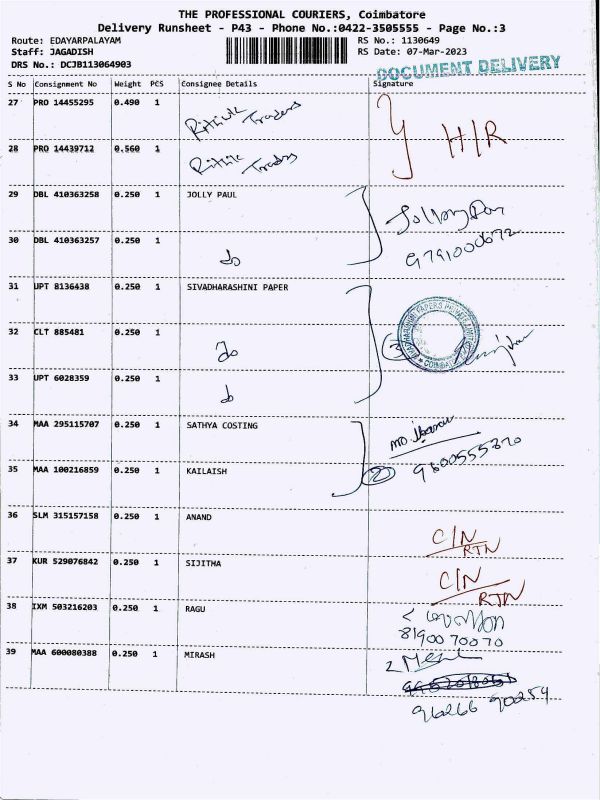 THE PROFESSIONAL COURIERS, Coimbatore
Delivery Runsheet - P43 - Phone No.:0422-3505555 - Page No.:3
Route: EDAYARPALAYAM RS No.: 1130649
Staff: JAGADISH RS Date: 07-Mar-2023
DRS No.: DCJB113064903
DOCUMENT DELIVERY
S No Consignment No Weight PCS Consignee Details Signature
27 PRO 14455295 0.490 1 Rithik Traders
H/R
28 PRO 14439712 0.560 1 Rithik Traders
29 DBL 410363258 0.250 1 JOLLY PAUL
30 DBL 410363257 0.250 1 do 9791000672
31 UPT 8136438 0.250 1 SIVADHARASHINI PAPER
32 CLT 885481 0.250 1 do 3
33 UPT 6028359 0.250 1 do
34 MAA 295115707 0.250 1 SATHYA COSTING
35 MAA 100216859 0.250 1 KAILAISH 2 9600555320
36 SLM 315157158 0.250 1 ANAND C/N RTN
37 KUR 529076842 0.250 1 SIJITHA C/N RTN
38 IXM 503216203 0.250 1 RAGU
8190070070
39 MAA 600080388 0.250 1 MIRASH
96266 90254